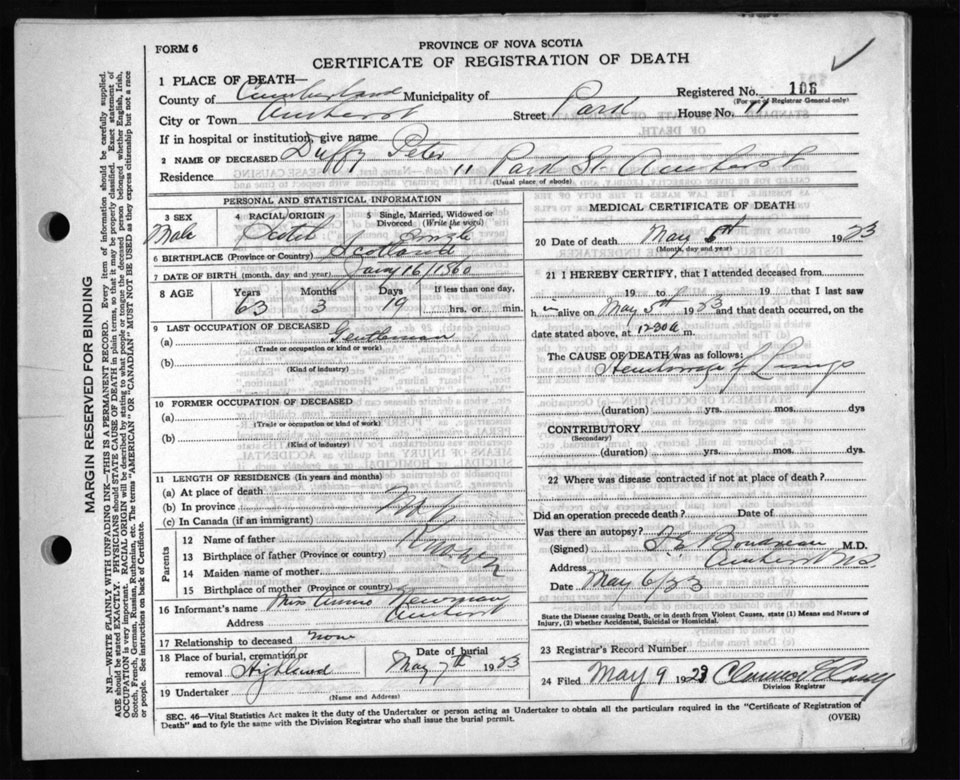 FORM 6
PROVINCE OF NOVA SCOTIA
CERTIFICATE OF REGISTRATION OF DEATH
1 PLACE OF DEATH—
County of Cumberland Municipality of
Registered No. 106
(For use of Registrar General only)
City or Town Amherst Street Park House No. 11
If in hospital or institution, give name
2 NAME OF DECEASED Duffy Peter
Residence 11 Park St. Amherst
(Usual place of abode)
PERSONAL AND STATISTICAL INFORMATION
3 SEX Male
4 RACIAL ORIGIN Scotch
5 Single, Married, Widowed or Divorced (Write the word) Single
6 BIRTHPLACE (Province or Country) Scotland
7 DATE OF BIRTH (month, day and year) Jany 16/1860
8 AGE Years 63 Months 3 Days 19 If less than one day, ...... hrs. or ...... min.
9 LAST OCCUPATION OF DECEASED
(a) Gentleman
(Trade or occupation or kind or work)
(b)
(Kind of industry)
10 FORMER OCCUPATION OF DECEASED
(a)
(Trade or occupation or kind or work)
(b)
(Kind of industry)
11 LENGTH OF RESIDENCE (In years and months)
(a) At place of death
(b) In province
(c) In Canada (if an immigrant)
Parents
12 Name of father
13 Birthplace of father (Province or country)
14 Maiden name of mother
15 Birthplace of mother (Province or country)
16 Informant's name Miss Annie Newman
Address Amherst
17 Relationship to deceased none
18 Place of burial, cremation or removal Highland
Date of burial May 7th 1923
19 Undertaker
(Name and Address)
MEDICAL CERTIFICATE OF DEATH
20 Date of death May 5th 1923
(Month, day and year)
21 I HEREBY CERTIFY, that I attended deceased from
19 to 19 that I last saw
him alive on May 5th 1923 and that death occurred, on
the date stated above, at 1230 a m.
The CAUSE OF DEATH was as follows:
Hemhorrage of Lungs
(duration) yrs. mos. dys
CONTRIBUTORY
(Secondary)
(duration) yrs. mos. dys.
22 Where was disease contracted if not at place of death?
Did an operation precede death? Date of
Was there an autopsy?
(Signed) M.D.
Address Amherst N.S.
Date May 6/23
State the Disease causing Death, or in deaths from Violent Causes, state (1) Means and Nature of
Injury, (2) whether Accidental, Suicidal or Homicidal.
23 Registrar's Record Number
24 Filed May 9 1923
Division Registrar
SEC. 46—Vital Statistics Act makes it the duty of the Undertaker or person acting as Undertaker to obtain all the particulars required in the "Certificate of Registration of
Death" and to fyle the same with the Division Registrar who shall issue the burial permit.
(OVER)
MARGIN RESERVED FOR BINDING
N.B—WRITE PLAINLY WITH UNFADING INK—THIS IS A PERMANENT RECORD. Every item of information should be carefully supplied.
AGE should be stated EXACTLY. PHYSICIANS should STATE CAUSE OF DEATH in plain terms, so that it may be properly classified. Exact statement of
OCCUPATION is very important. RACIAL ORIGIN will be described by stating to what people or tongue the deceased person belonged whether English, Irish,
Scotch, French, German, Russian, Ruthenian, etc. The terms "AMERICAN" OR "CANADIAN" MUST NOT BE USED as they express citizenship but not a race
or people. See instructions on back of Certificate.